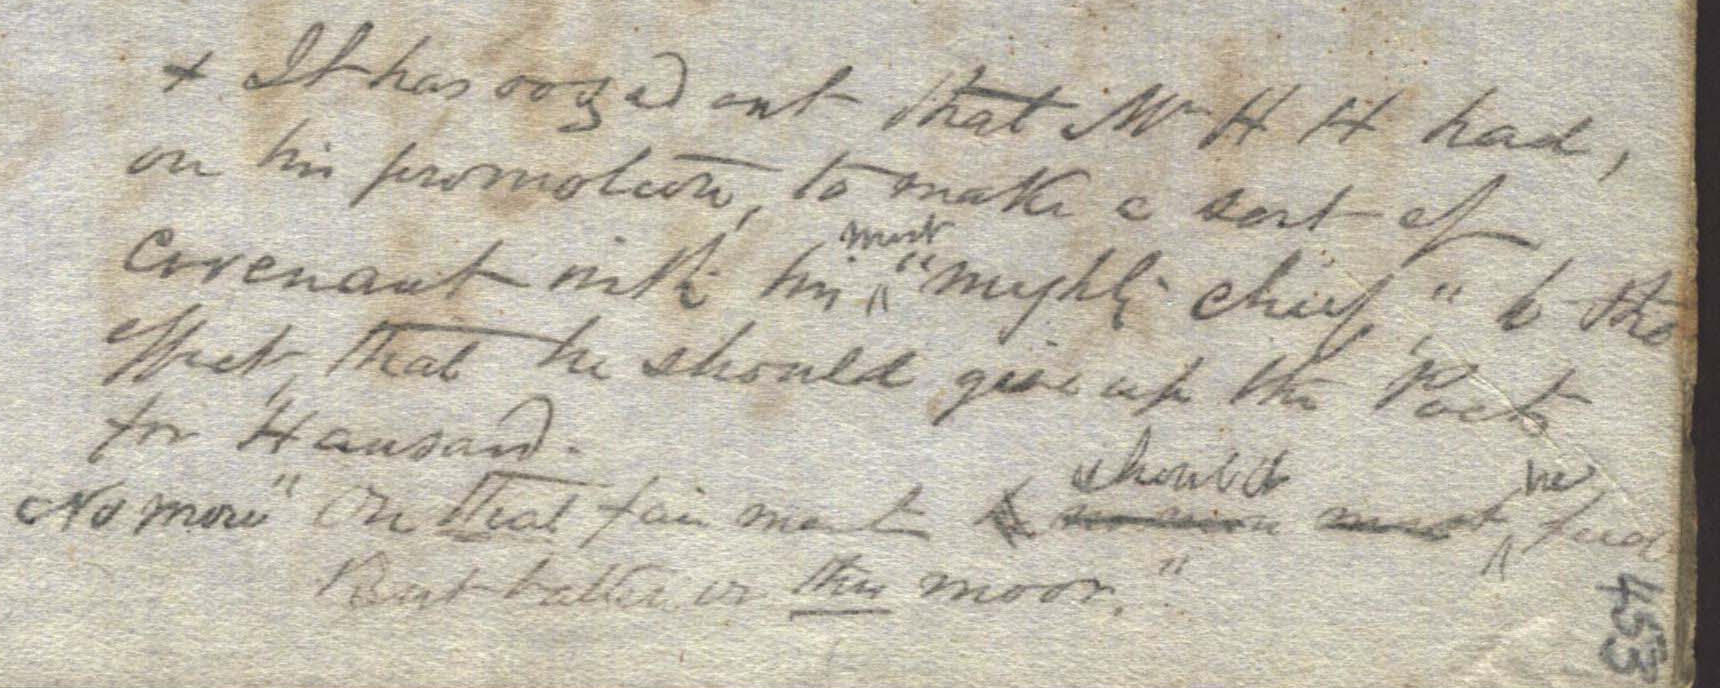 + It has oozed out that Mr H H had,
on his promotion, to make a sort of
Covenant with his most "mighty chief," to the
effect, that he should give up the Poets
for Hansard.
No more "On that fair mount should he feed
But batten on this moor."
453